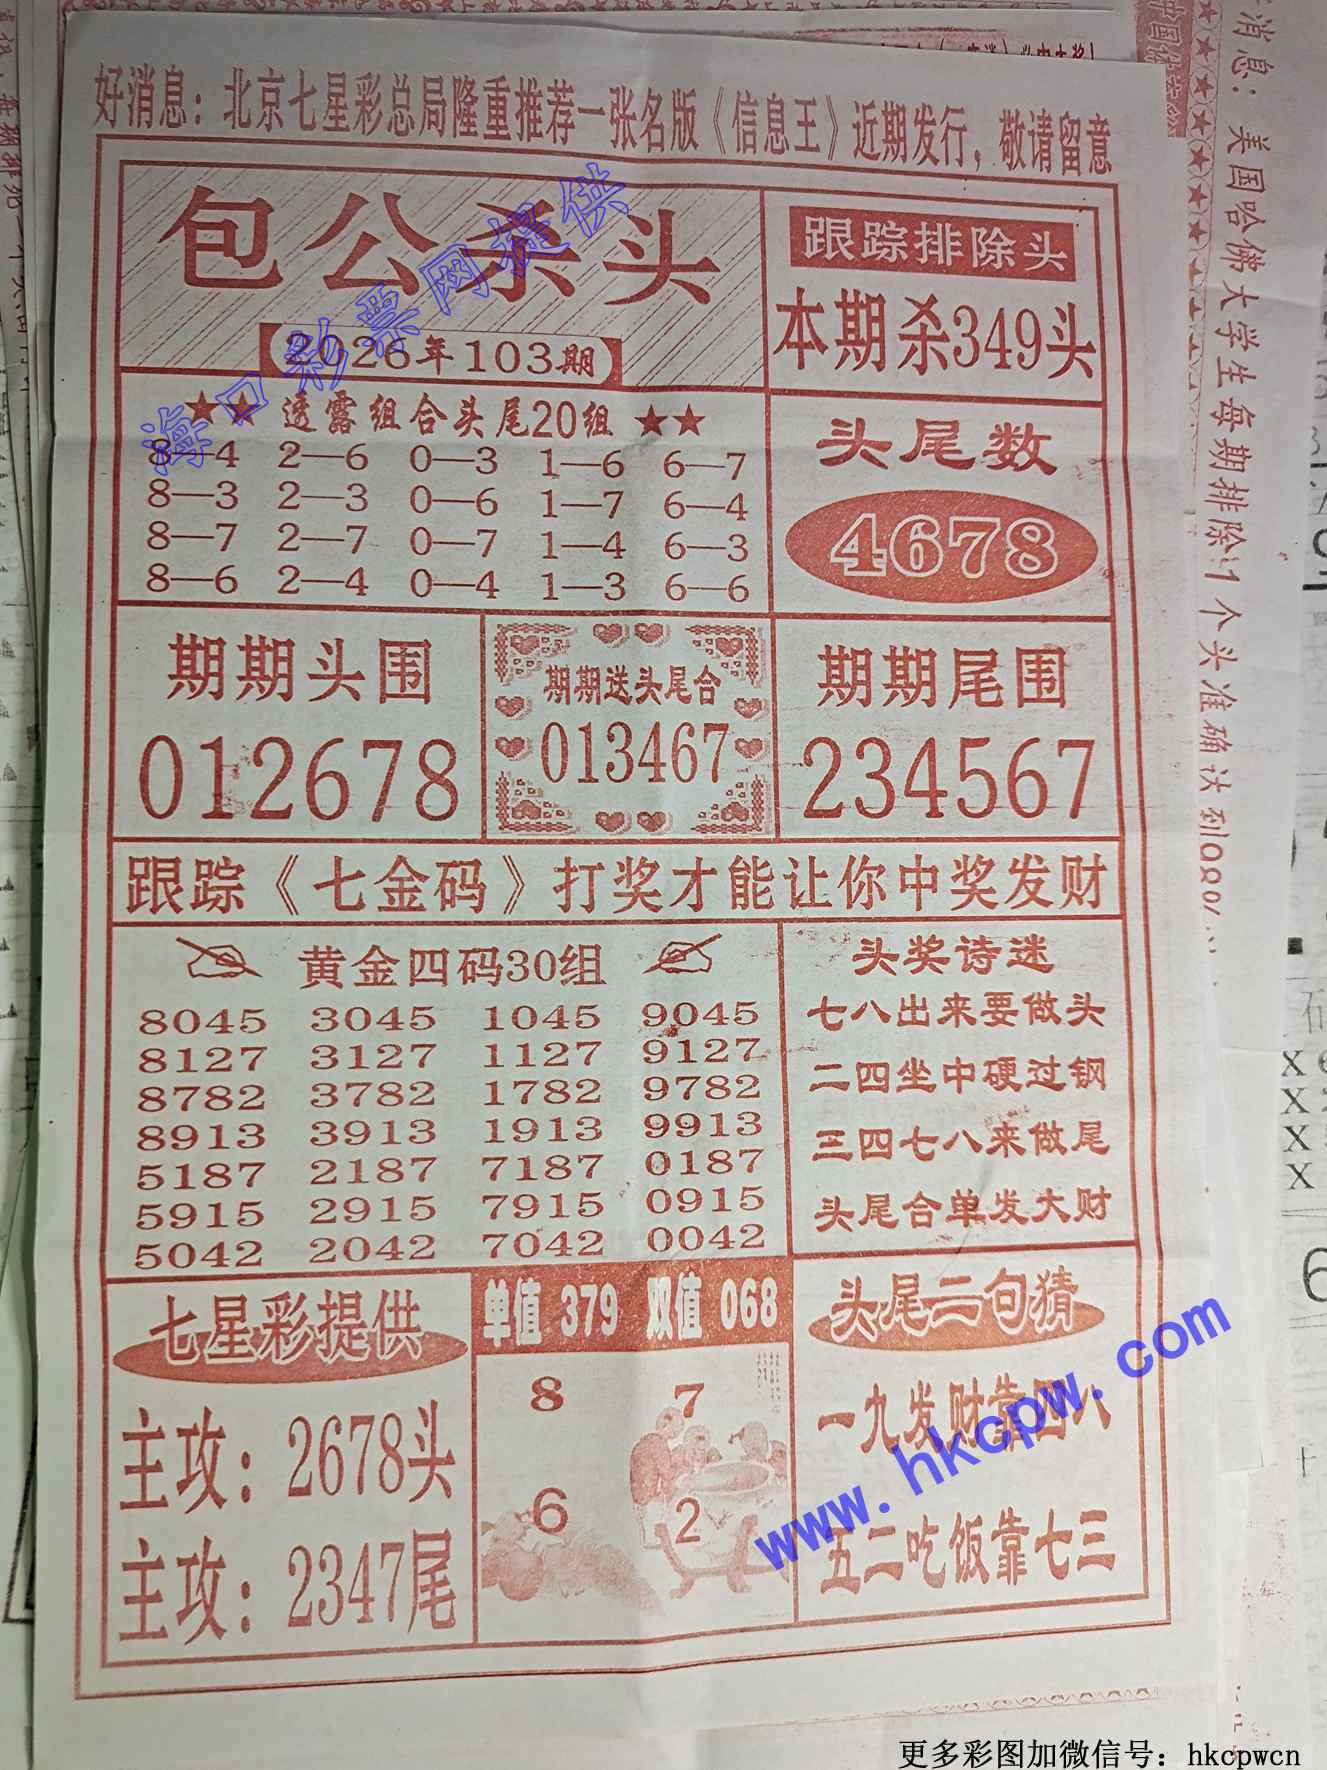 好消息：北京七星彩总局隆重推荐一张名版《信息王》近期发行，敬请留意
包公杀头
2026年103期
跟踪排除头
本期杀349头
★★ 透露组合头尾20组 ★★
8—4 2—6 0—3 1—6 6—7
8—3 2—3 0—6 1—7 6—4
8—7 2—7 0—7 1—4 6—3
8—6 2—4 0—4 1—3 6—6
头尾数
4678
期期头围
012678
期期送头尾合
013467
期期尾围
234567
跟踪《七金码》打奖才能让你中奖发财
黄金四码30组
8045 3045 1045 9045
8127 3127 1127 9127
8782 3782 1782 9782
8913 3913 1913 9913
5187 2187 7187 0187
5915 2915 7915 0915
5042 2042 7042 0042
头奖诗迷
七八出来要做头
二四坐中硬过钢
三四七八来做尾
头尾合单发大财
七星彩提供
主攻：2678头
主攻：2347尾
单值 379 双值 068
8 7
6 2
头尾二句猜
一九发财靠四八
五二吃饭靠七三
海口彩票网提供
www.hkcpw.com
消息：美国哈佛大学生每期排除1个头准确达到
更多彩图加微信号：hkcpwcn